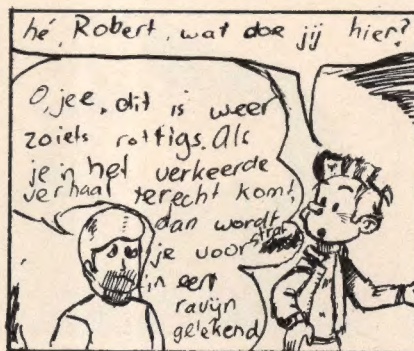 hé, Robert, wat doe jij hier?
O, jee, dit is weer
zoiets rottigs. Als
je in het verkeerde
verhaal terecht komt,
dan wordt
je voor straf
in een
ravijn
getekend